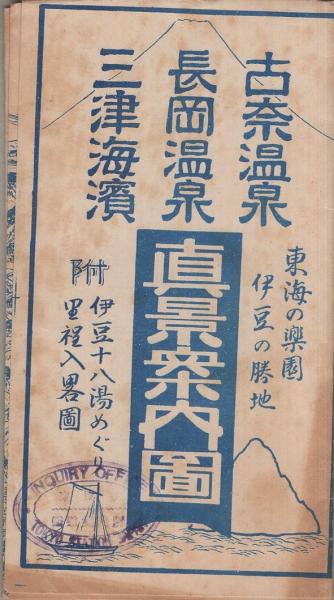 古奈温泉
長岡温泉
三津海濱
東海の樂園
伊豆の勝地
真景案内圖
附 伊豆十八湯めぐり
里程入畧圖
INQUIRY OFF
TOKYO STATION